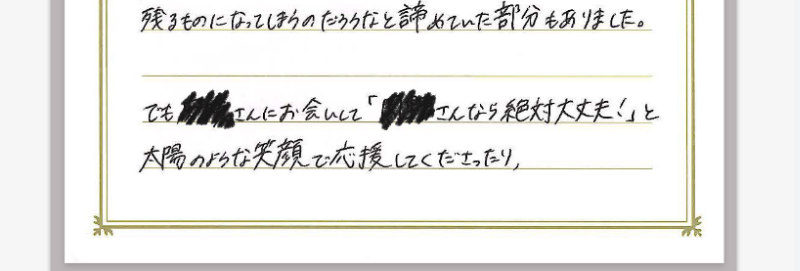 残るものになってしまうのだろうなと諦めていた部分もありました。
でもさんにお会いして「さんなら絶対大丈夫!」と
太陽のような笑顔で応援してくださったり,